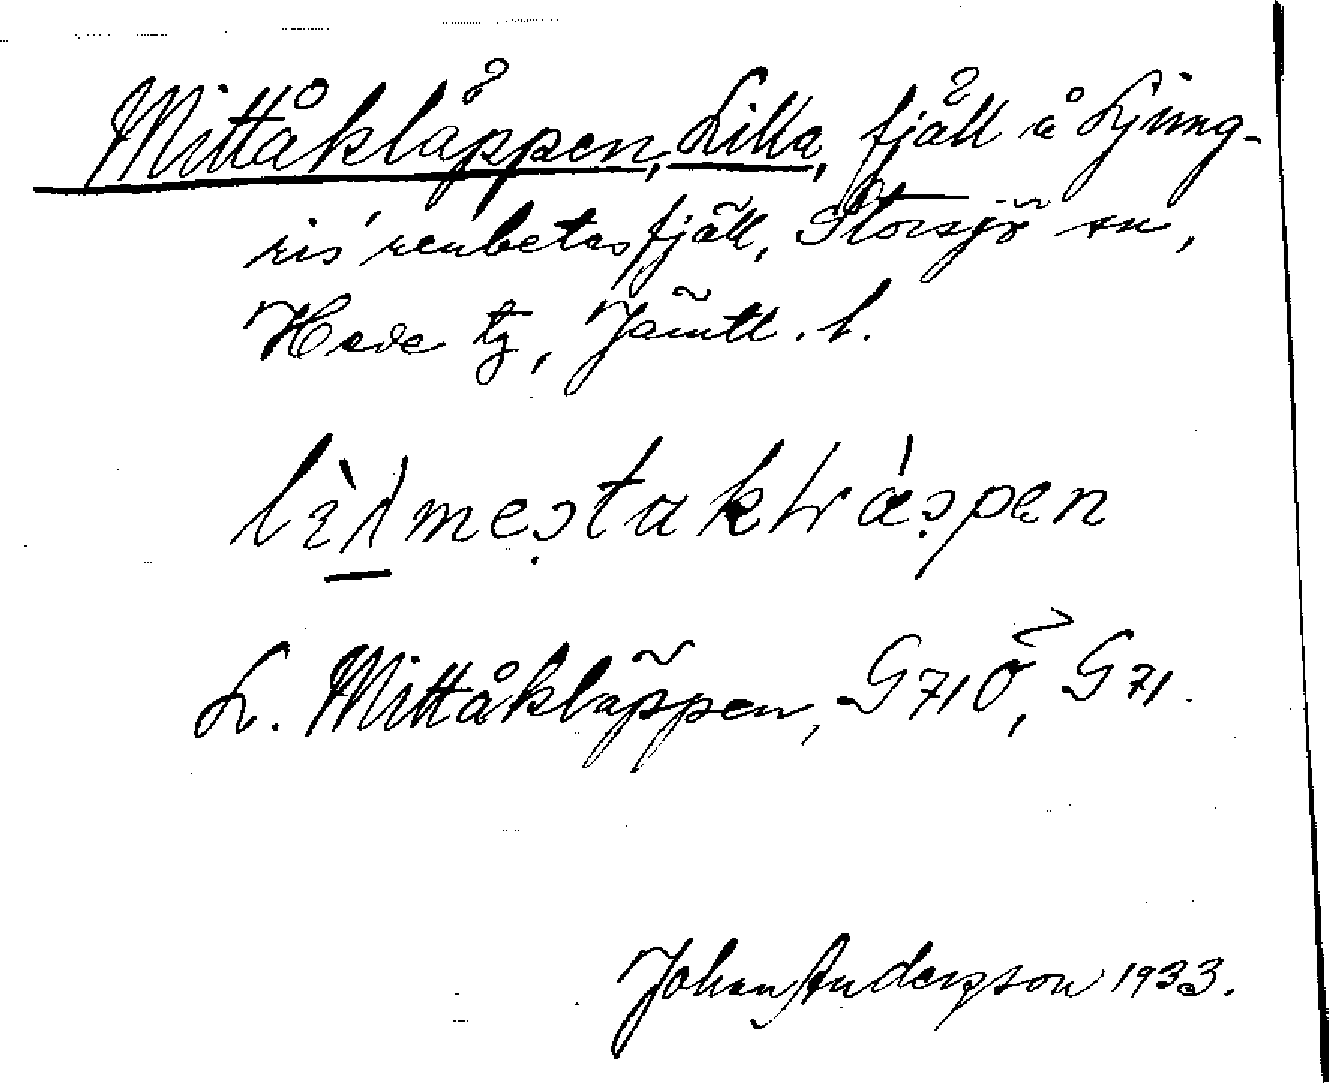 Mittåkläppen, Lilla, fjäll å Ljung-
ris' renbetesfjäll, Storsjö sn,
Hede tg, Jämtl. l.
L. Mittåkläppen, G710, G71.
Johan Anderson 1933.